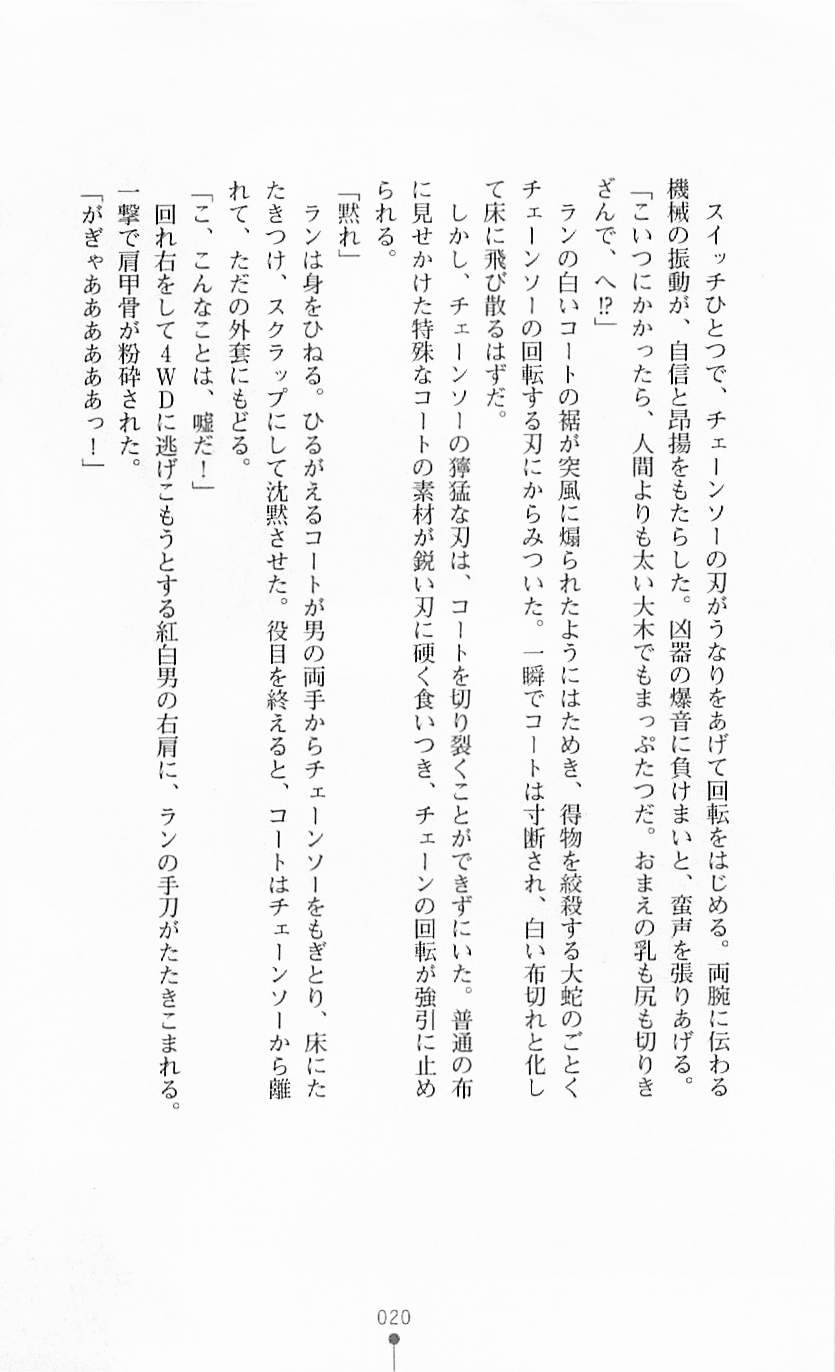 スイッチひとつで、チェーンソーの刃がうなりをあげて回転をはじめる。両腕に伝わる
機械の振動が、自信と昂揚をもたらした。凶器の爆音に負けまいと、蛮声を張りあげる。
「こいつにかかったら、人間よりも太い大木でもまっぷたつだ。おまえの乳も尻も切りき
ざんで、へ!?」
　ランの白いコートの裾が突風に煽られたようにはためき、得物を絞殺する大蛇のごとく
チェーンソーの回転する刃にからみついた。一瞬でコートは寸断され、白い布切れと化し
て床に飛び散るはずだ。
　しかし、チェーンソーの獰猛な刃は、コートを切り裂くことができずにいた。普通の布
に見せかけた特殊なコートの素材が鋭い刃に硬く食いつき、チェーンの回転が強引に止め
られる。
「黙れ」
　ランは身をひねる。ひるがえるコートが男の両手からチェーンソーをもぎとり、床にた
たきつけ、スクラップにして沈黙させた。役目を終えると、コートはチェーンソーから離
れて、ただの外套にもどる。
「こ、こんなことは、嘘だ！」
　回れ右をして４ＷＤに逃げこもうとする紅白男の右肩に、ランの手刀がたたきこまれる。
一撃で肩甲骨が粉砕された。
「がぎゃああああああっ！」
020